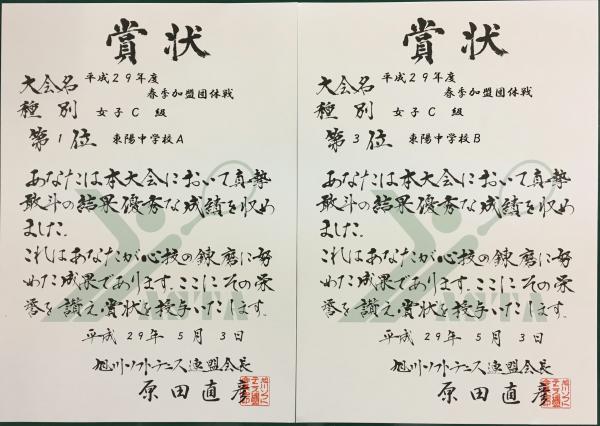 賞状
大会名 平成29年度
春季加盟団体戦
種別 女子C 級
第1位 東陽中学校A
あなたは本大会において真摯
敢斗の結果優秀な成績を収め
ました.
これはあなたが心技の錬磨に努
めた成果であります.ここにその栄
誉を讃え賞状を授与いたします.
平成 29年 5月 3日
旭川ソフトテニス連盟会長
原田直彦
賞状
大会名 平成29年度
春季加盟団体戦
種別 女子C 級
第3位 東陽中学校B
あなたは本大会において真摯
敢斗の結果優秀な成績を収め
ました.
これはあなたが心技の錬磨に努
めた成果であります.ここにその栄
誉を讃え賞状を授与いたします.
平成 29年 5月 3日
旭川ソフトテニス連盟会長
原田直彦